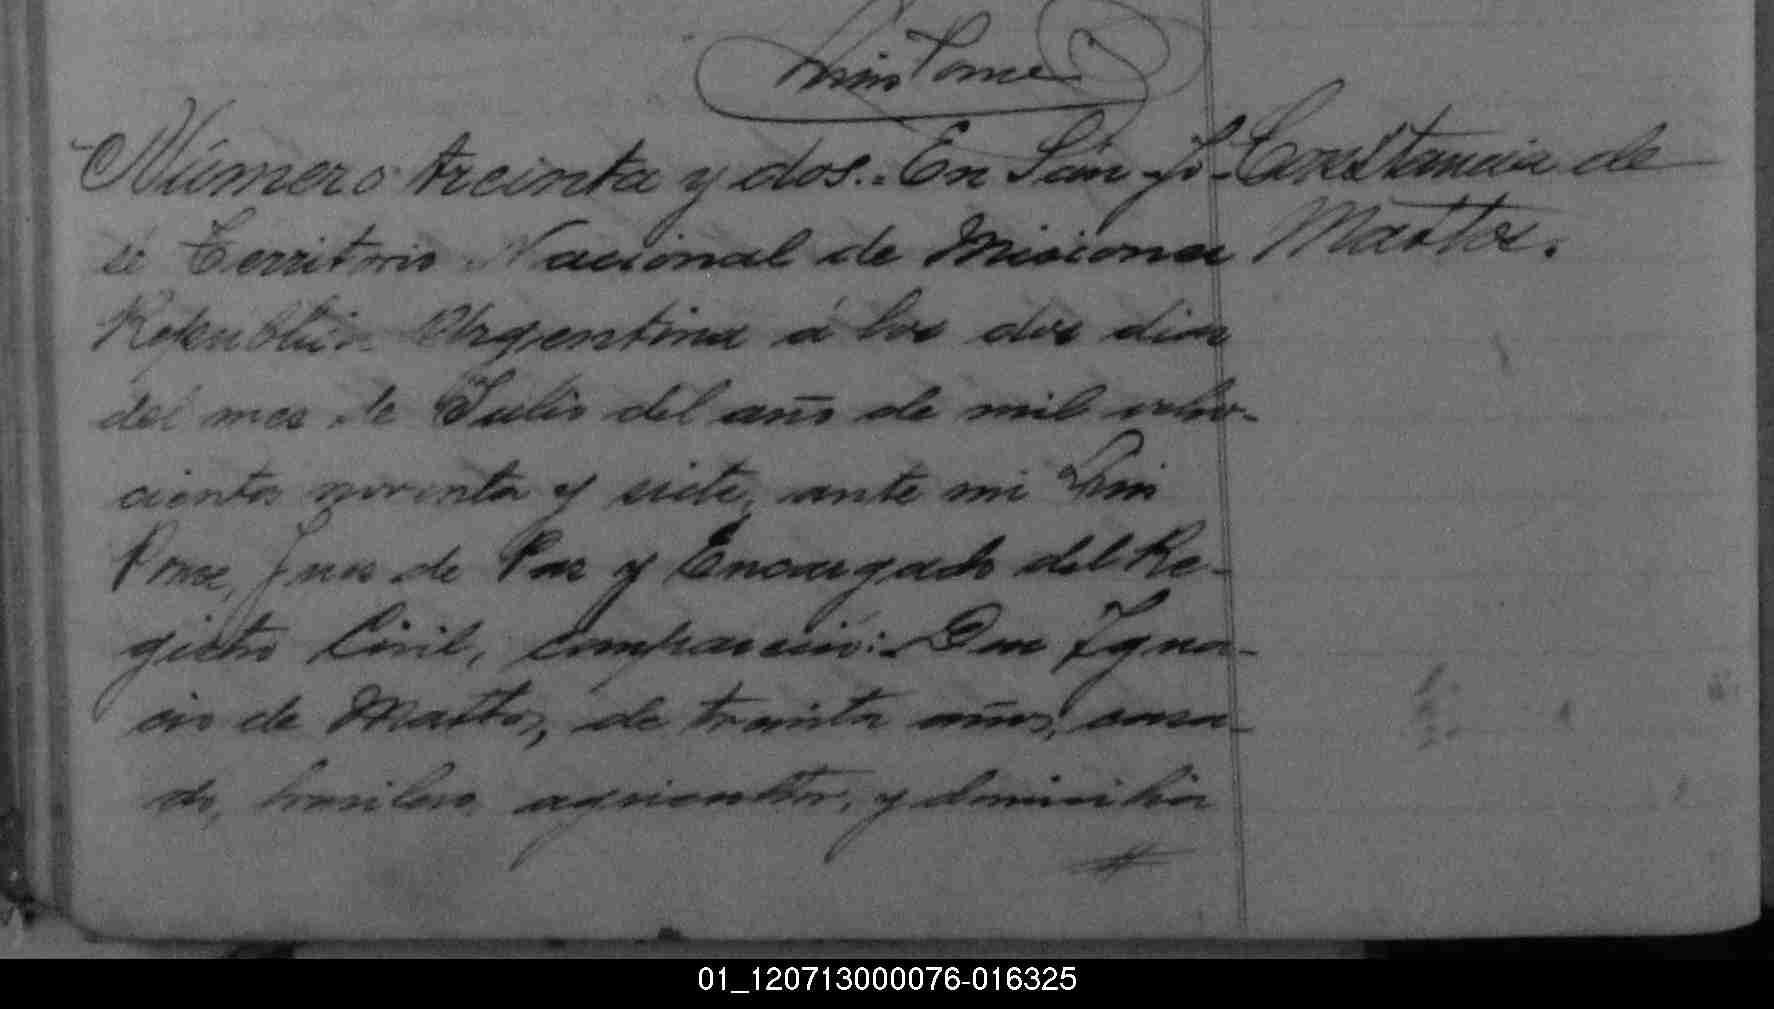 Luis Ponce
Número treinta y dos.. En San Jo-
sé Territorio Nacional de Misiones
República Argentina á los dos dias
del mes de Julio del año de mil ocho-
cientos noventa y siete, ante mi Luis
Ponce, Juez de Paz y Encargado del Re-
gistro Civil, compareció: Don Igna-
cio de Mattos, de treinta años, casa-
do, brasilero, agricultor, y domicilia
Constancia de
Mattos.
01_120713000076-016325